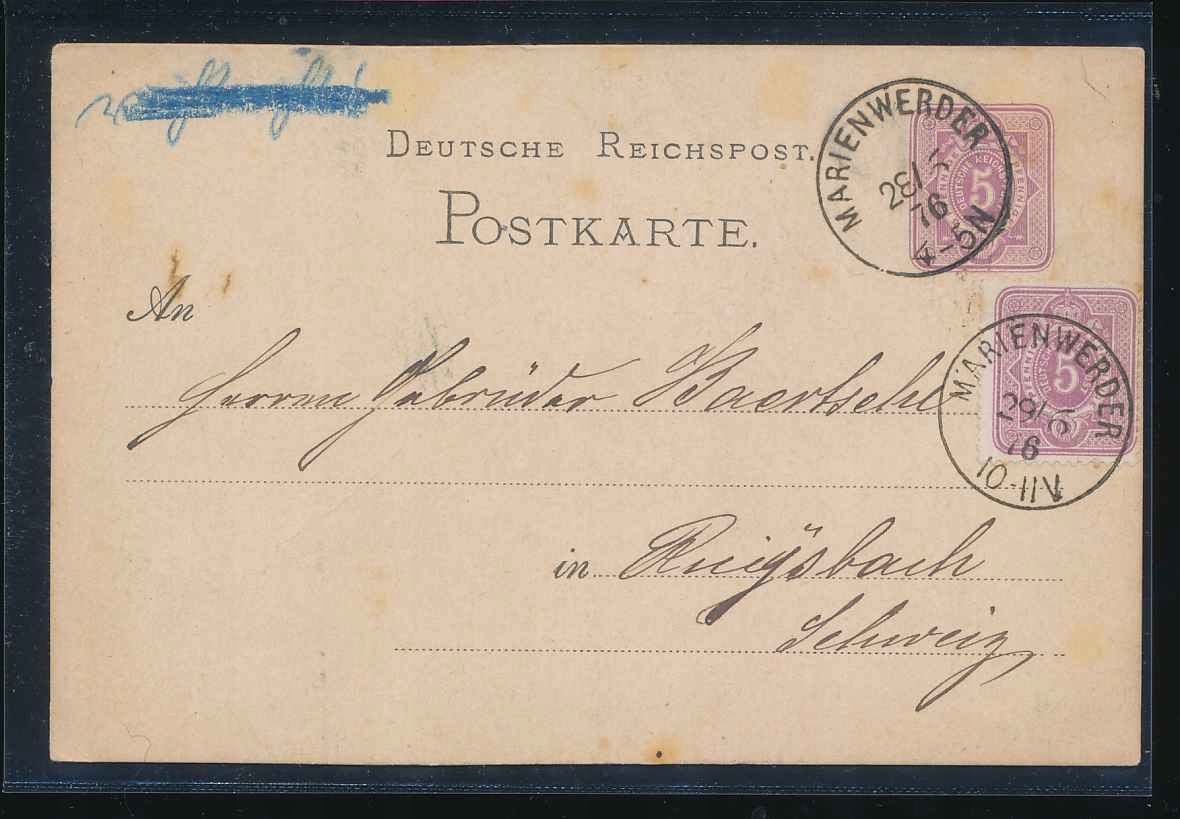 DEUTSCHE REICHSPOST.
POSTKARTE.
MARIENWERDER
28/5
76
4-5N
5
MARIENWERDER
29/5
76
10-11V
5
An
Herren Gebrüder Baertschi
in
Schweiz